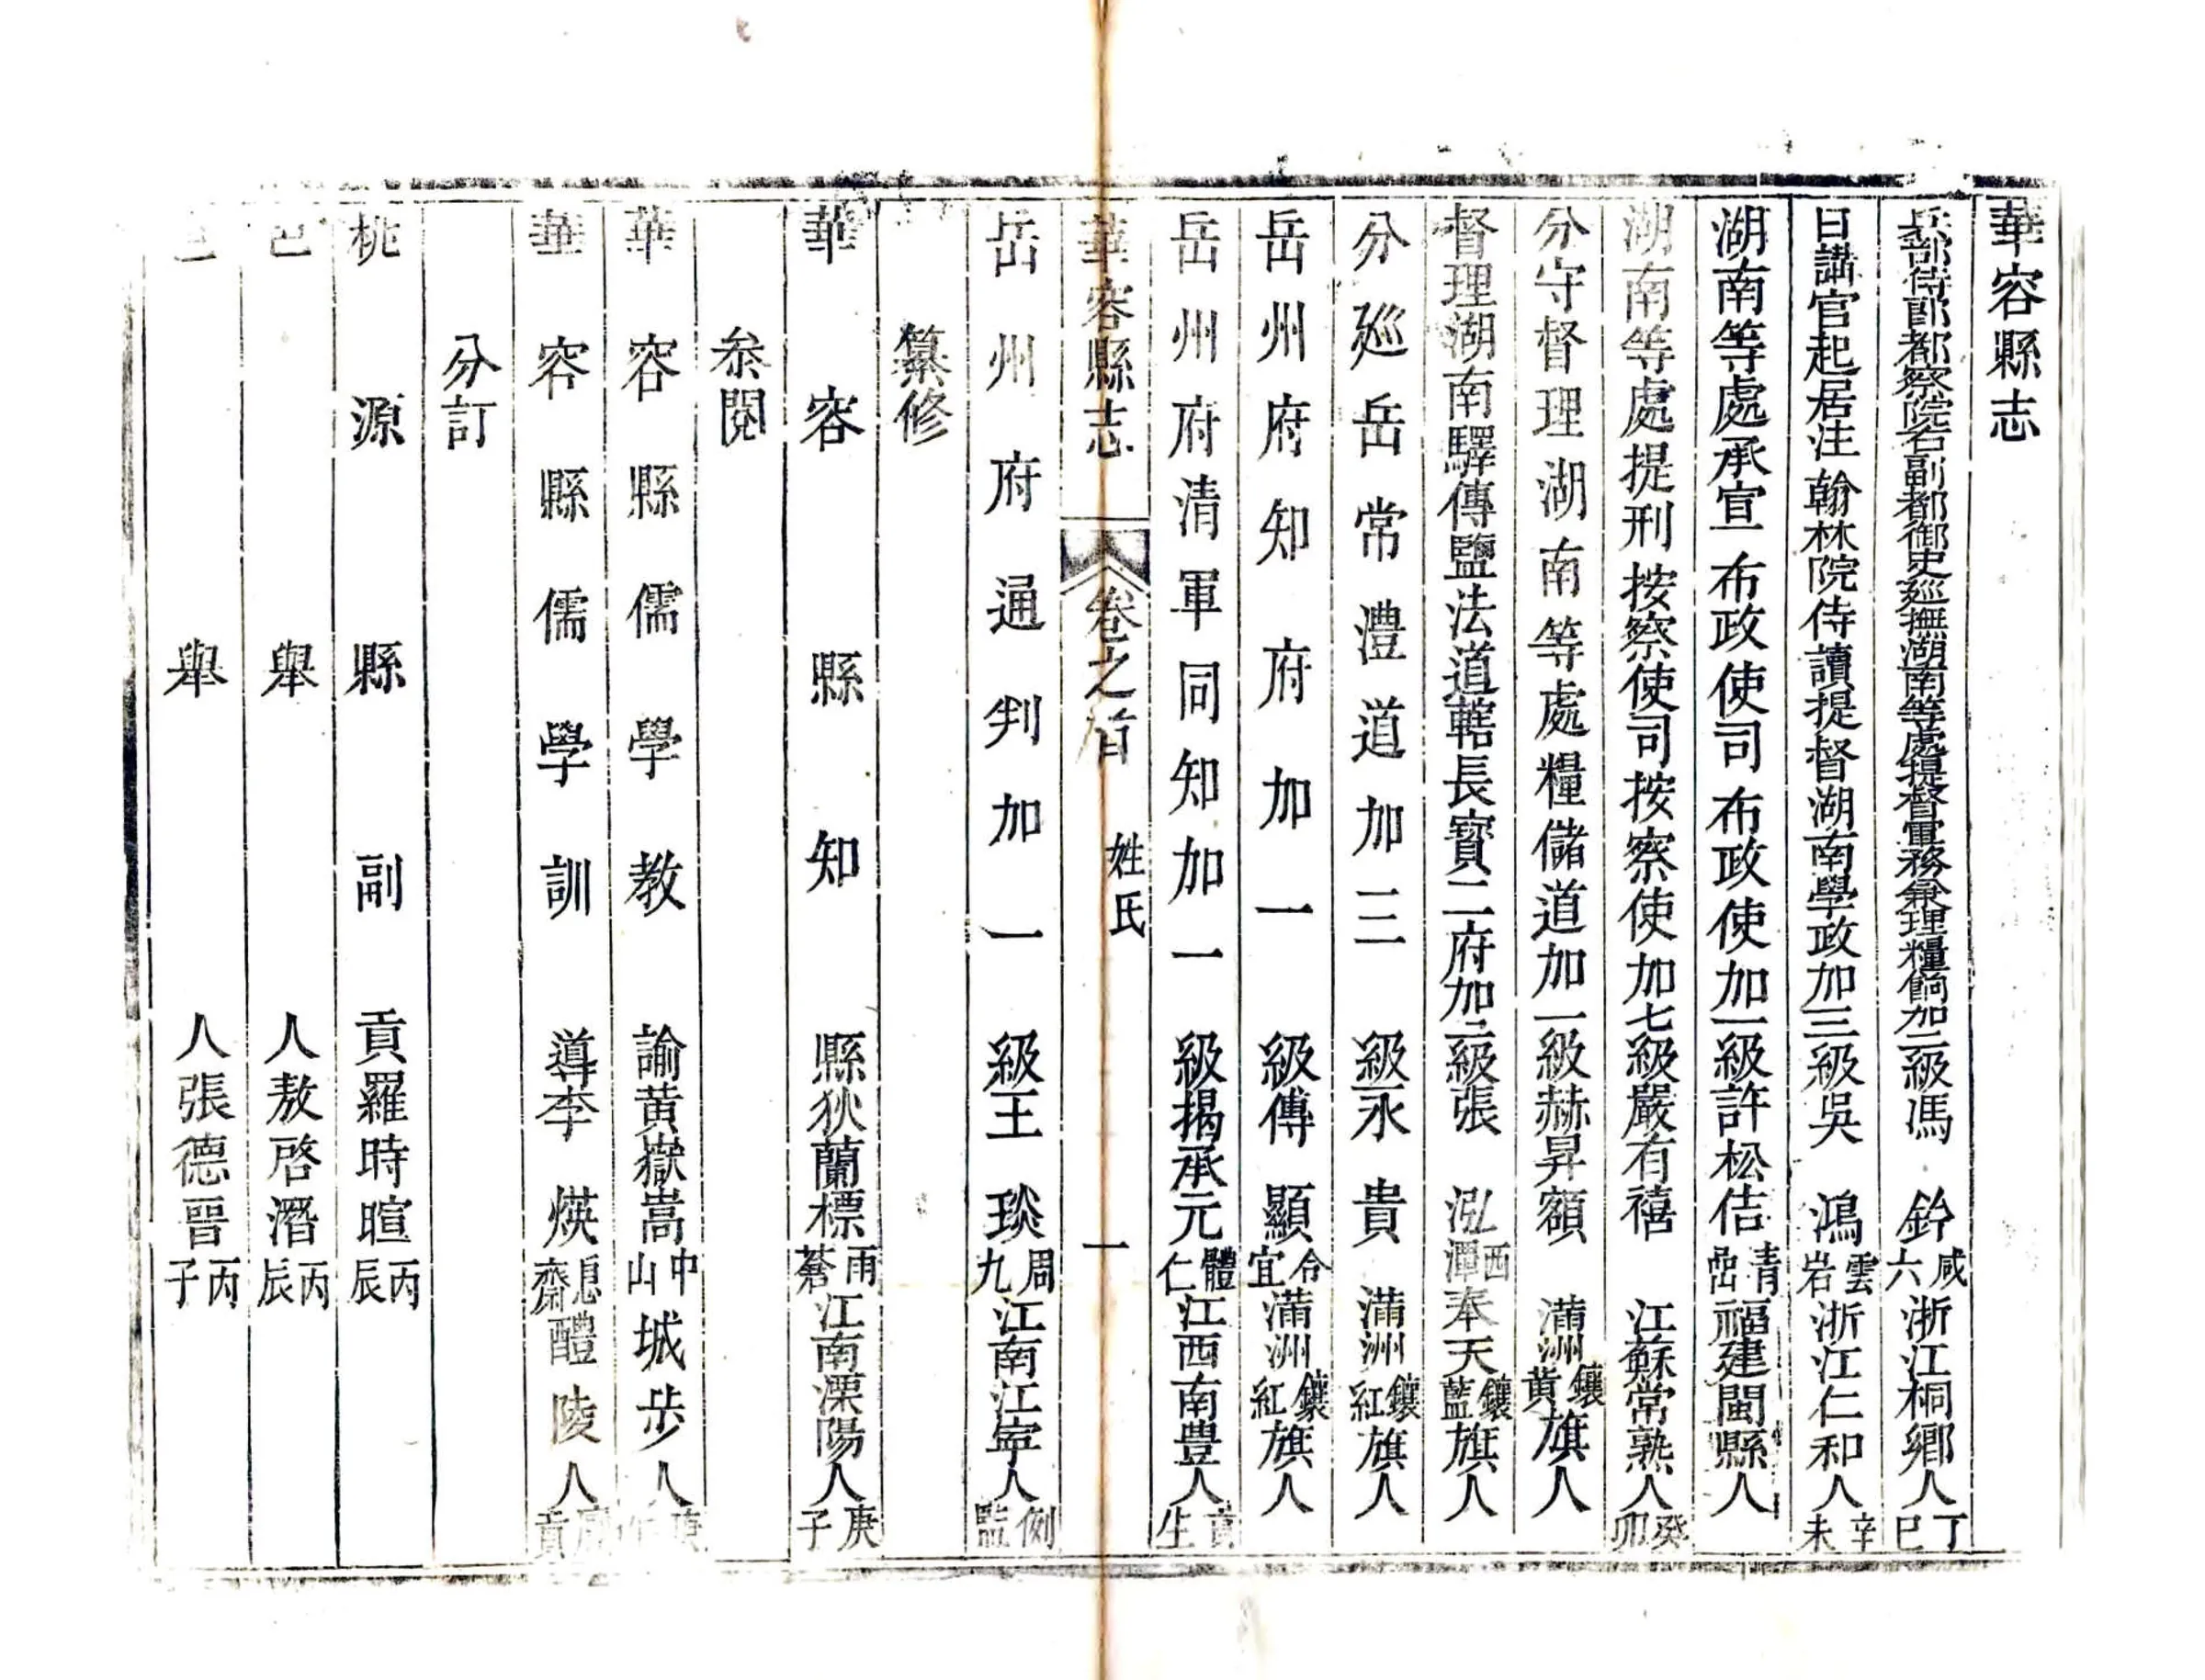 華容縣志
兵部侍郎都察院右副都御史廵撫湖南等處提督軍務兼理糧餉加二級馮 鈐咸六浙江桐鄉人丁巳
日講官起居注翰林院侍讀提督湖南學政加三級吳 鴻雲岩浙江仁和人辛未
湖南等處承宣布政使司布政使加一級許松佶青嵒福建閩縣人
湖南等處提刑按察使司按察使加七級嚴有禧 江蘇常熟人癸卯
分守督理湖南等處糧儲道加一級赫昇額 滿洲鑲黃旗人
督理湖南驛傳鹽法道轄長寶二府加二級張 泓西潭奉天鑲藍旗人
分廵岳常澧道加三級永貴 滿洲鑲紅旗人
岳州府知府加一級傅顯令宜滿洲鑲紅旗人
岳州府清軍同知加一級揭承元體仁江西南豊人貢生
華容縣志 卷之首 姓氏 一
岳州府通判加一級王 琰周九江南江寧人例監
纂修
華容縣知縣狄蘭標雨蒼江南溧陽人庚子
叅閱
華容縣儒學教諭黃嶽嵩中山城步人庚
華容縣儒學訓導李 煐息齋醴陵人貢
分訂
桃源縣副貢羅時暄丙辰
巴 舉人敖啓潛丙辰
舉人張德晉丙子